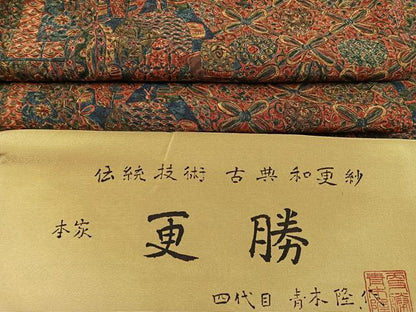 伝統技術 古典和更紗
本家 更勝
四代目 青木隆